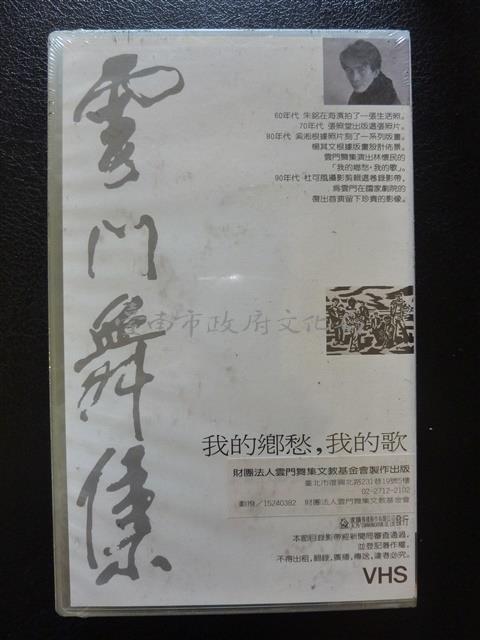 雲門舞集
60年代 朱銘在海濱拍了一張生活照。
70年代 張照堂出版這張照片。
80年代 吳淞根據照片刻了一系列版畫。
楊其文根據版畫設計佈景。
雲門舞集演出林懷民的
「我的鄉愁,我的歌」。
90年代 杜可風攝影剪輯這卷錄影帶,
為雲門在國家劇院的
復出首演留下珍貴的影像。
南市政府文化
我的鄉愁,我的歌
財團法人雲門舞集文教基金會製作出版
臺北市復興北路231巷19號5樓
02-2712-2102
劃撥/15240382 財團法人雲門舞集文教基金會
發行
本節目錄影帶經新聞局審查通過,
並登記著作權,
不得出租,翻錄,廣播,傳送,違者必究。
VHS